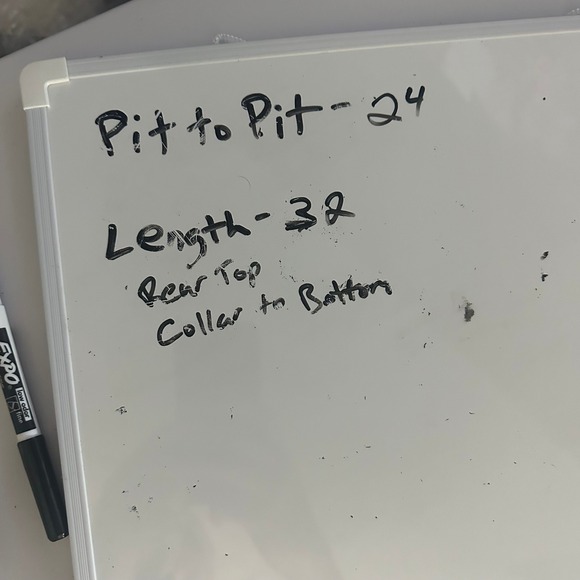 Pit to Pit - 24
Length - 32
Rear Top
Collar to Bottom
EXPO
low odor